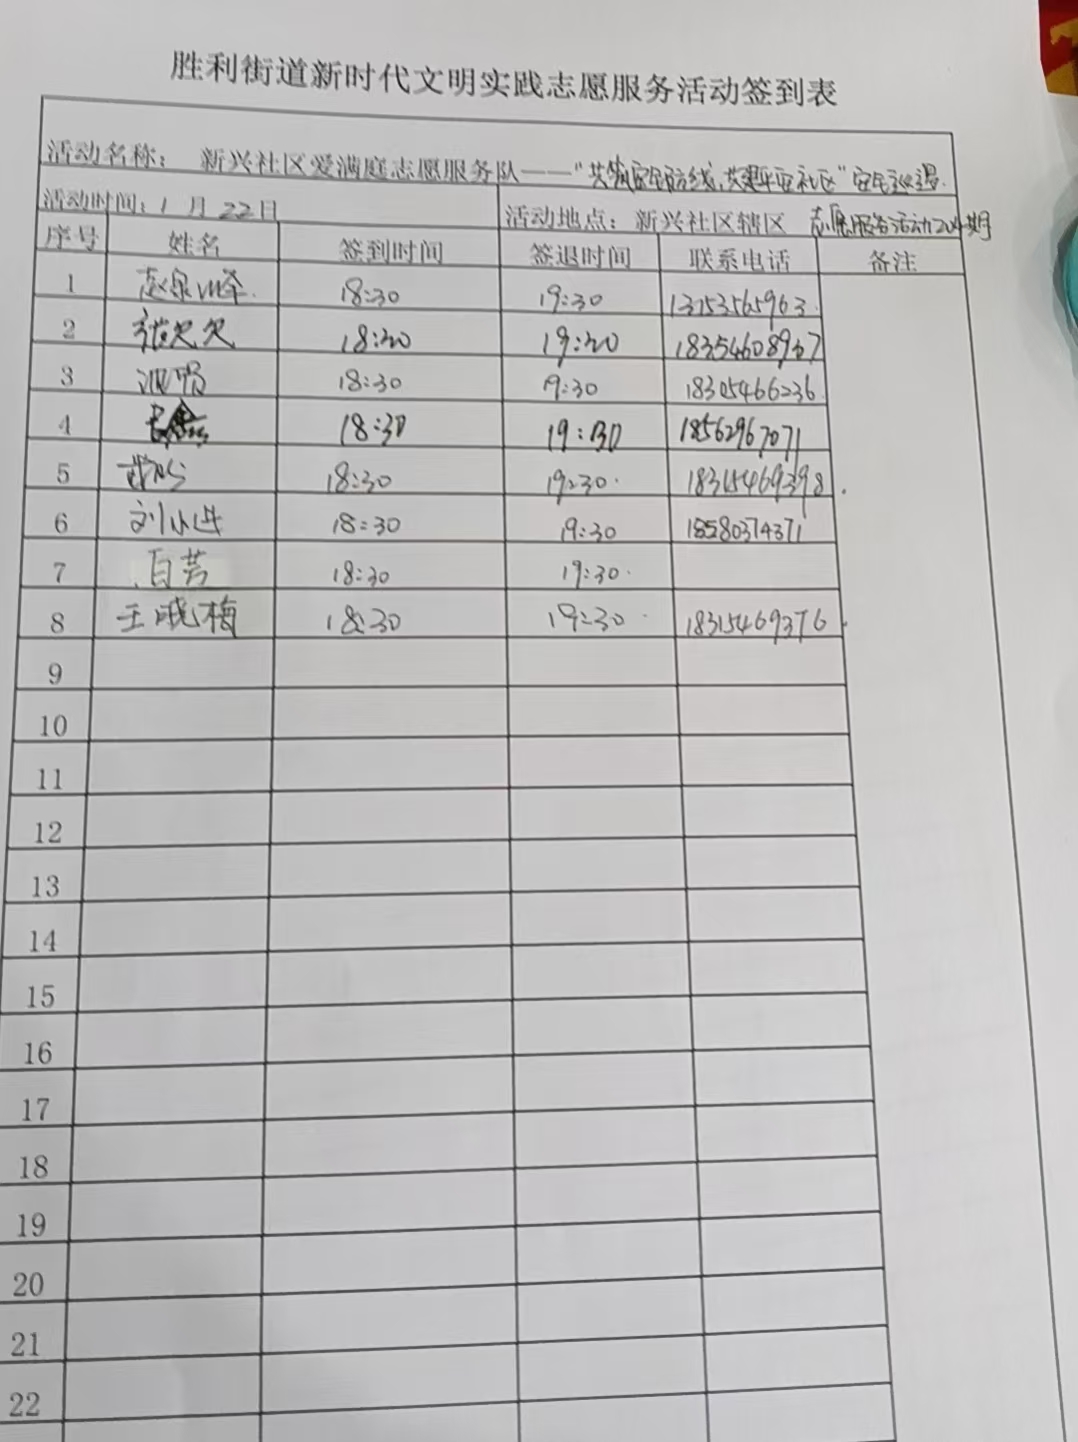 胜利街道新时代文明实践志愿服务活动签到表
活动名称： 新兴社区爱满庭志愿服务队——“共筑安全防线，共建平安社区”
活动时间：1月22日 活动地点：新兴社区辖区 志愿服务活动204期
序号 姓名 签到时间 签退时间 联系电话 备注
1 18:30 19:30
2 18:30 19:30
3 18:30 19:30 18305466236
4 18:30 19:30 18562967071
5 18:30 19:30 18315469398
6 刘小进 18:30 19:30 18580374371
7 白芸 18:30 19:30
8 王晓梅 18:30 19:30 18315469376
9
10
11
12
13
14
15
16
17
18
19
20
21
22